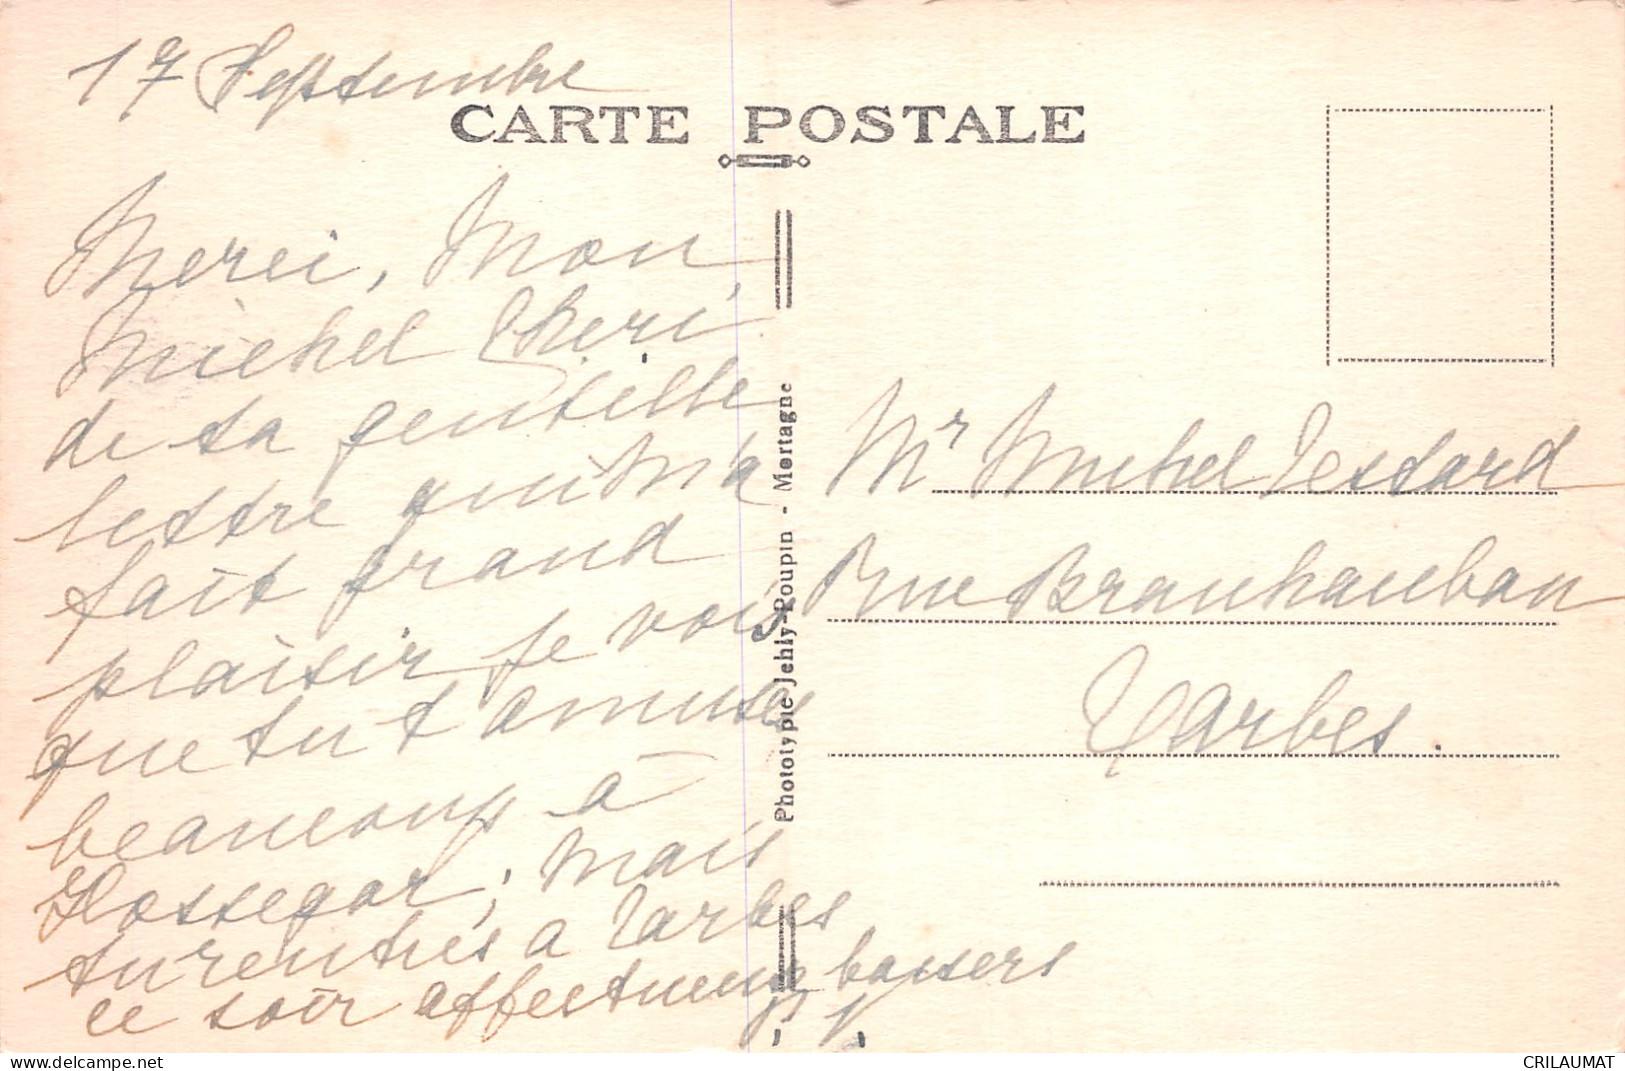 17 Septembre
CARTE POSTALE
Merci, Mon
Michel Cheri,
de ta gentille
lettre qui m'a
fait grand
plaisir je vois
que tu t'amuses
beaucoup à
Hossegor, mais
tu rentres a Tarbes
ce soir affectueux baisers
Phototypie Jehly-Poupin - Mortagne
Mr Michel Testard
Rue Brauhauban
Tarbes.
CRILAUMAT